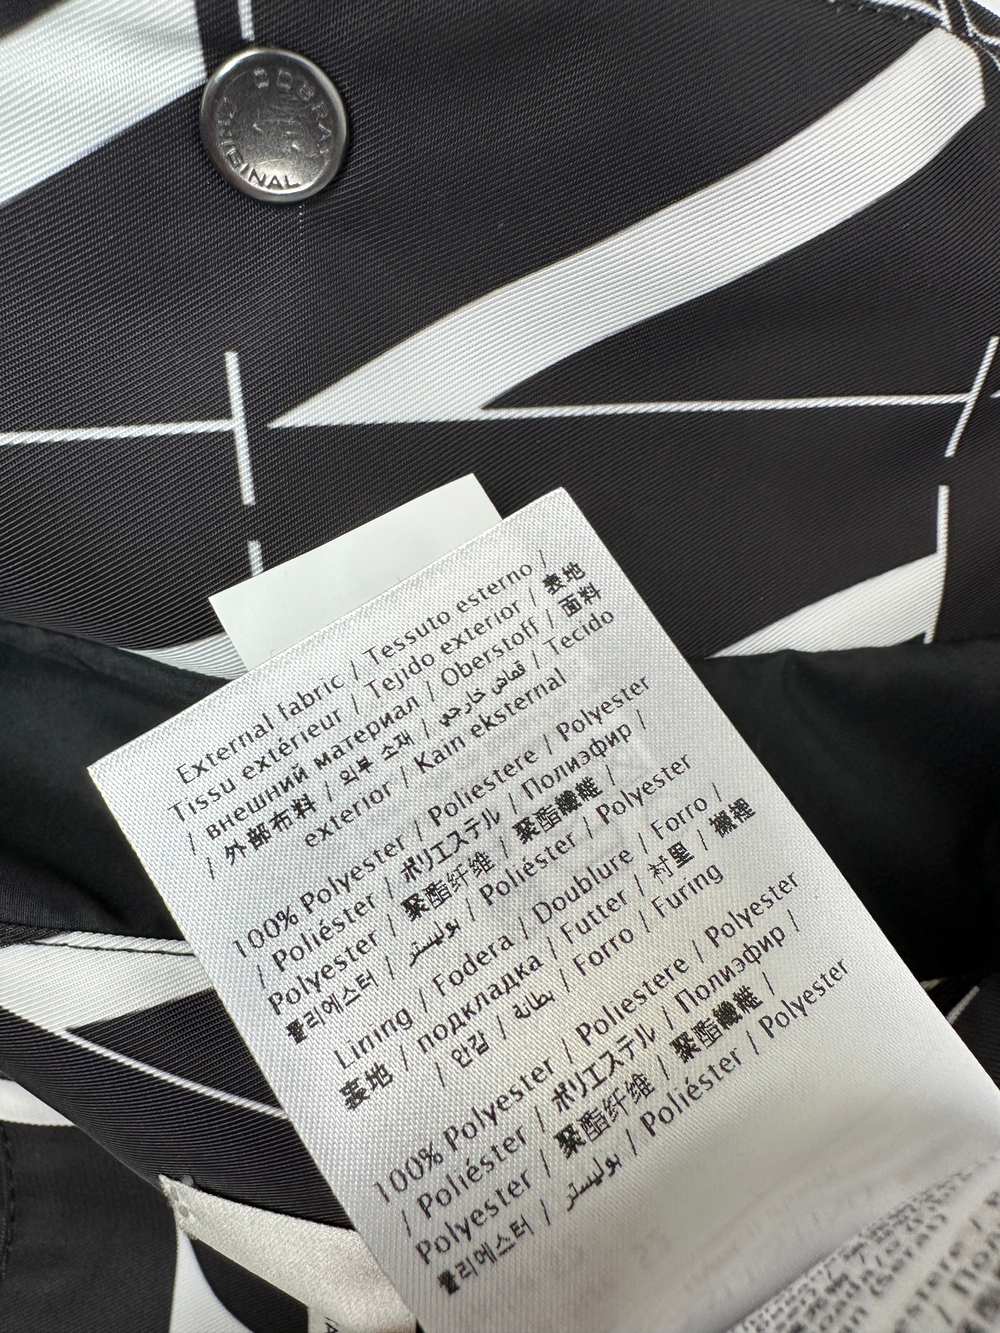 COBRAX
ORIGINAL
External fabric / Tessuto esterno /
Tissu extérieur / Tejido exterior / 表地
/ внешний материал / Oberstoff / 面料
/ 外部布料 / 외부 소재 / قماش خارجي / Tecido
exterior / Kain eksternal
100% Polyester / Poliestere / Polyester
/ Poliéster / ポリエステル / Полиэфир /
Polyester / 聚酯纤维 / 聚酯纖維 /
폴리에스터 / بوليستر / Poliéster / Polyester
Lining / Fodera / Doublure / Forro /
裏地 / подкладка / Futter / 衬里 / 襯裡
/ 안감 / بطانة / Forro / Furing
100% Polyester / Poliestere / Polyester
/ Poliéster / ポリエステル / Полиэфир /
Polyester / 聚酯纤维 / 聚酯纖維 /
폴리에스터 / بوليستر / Poliéster / Polyester